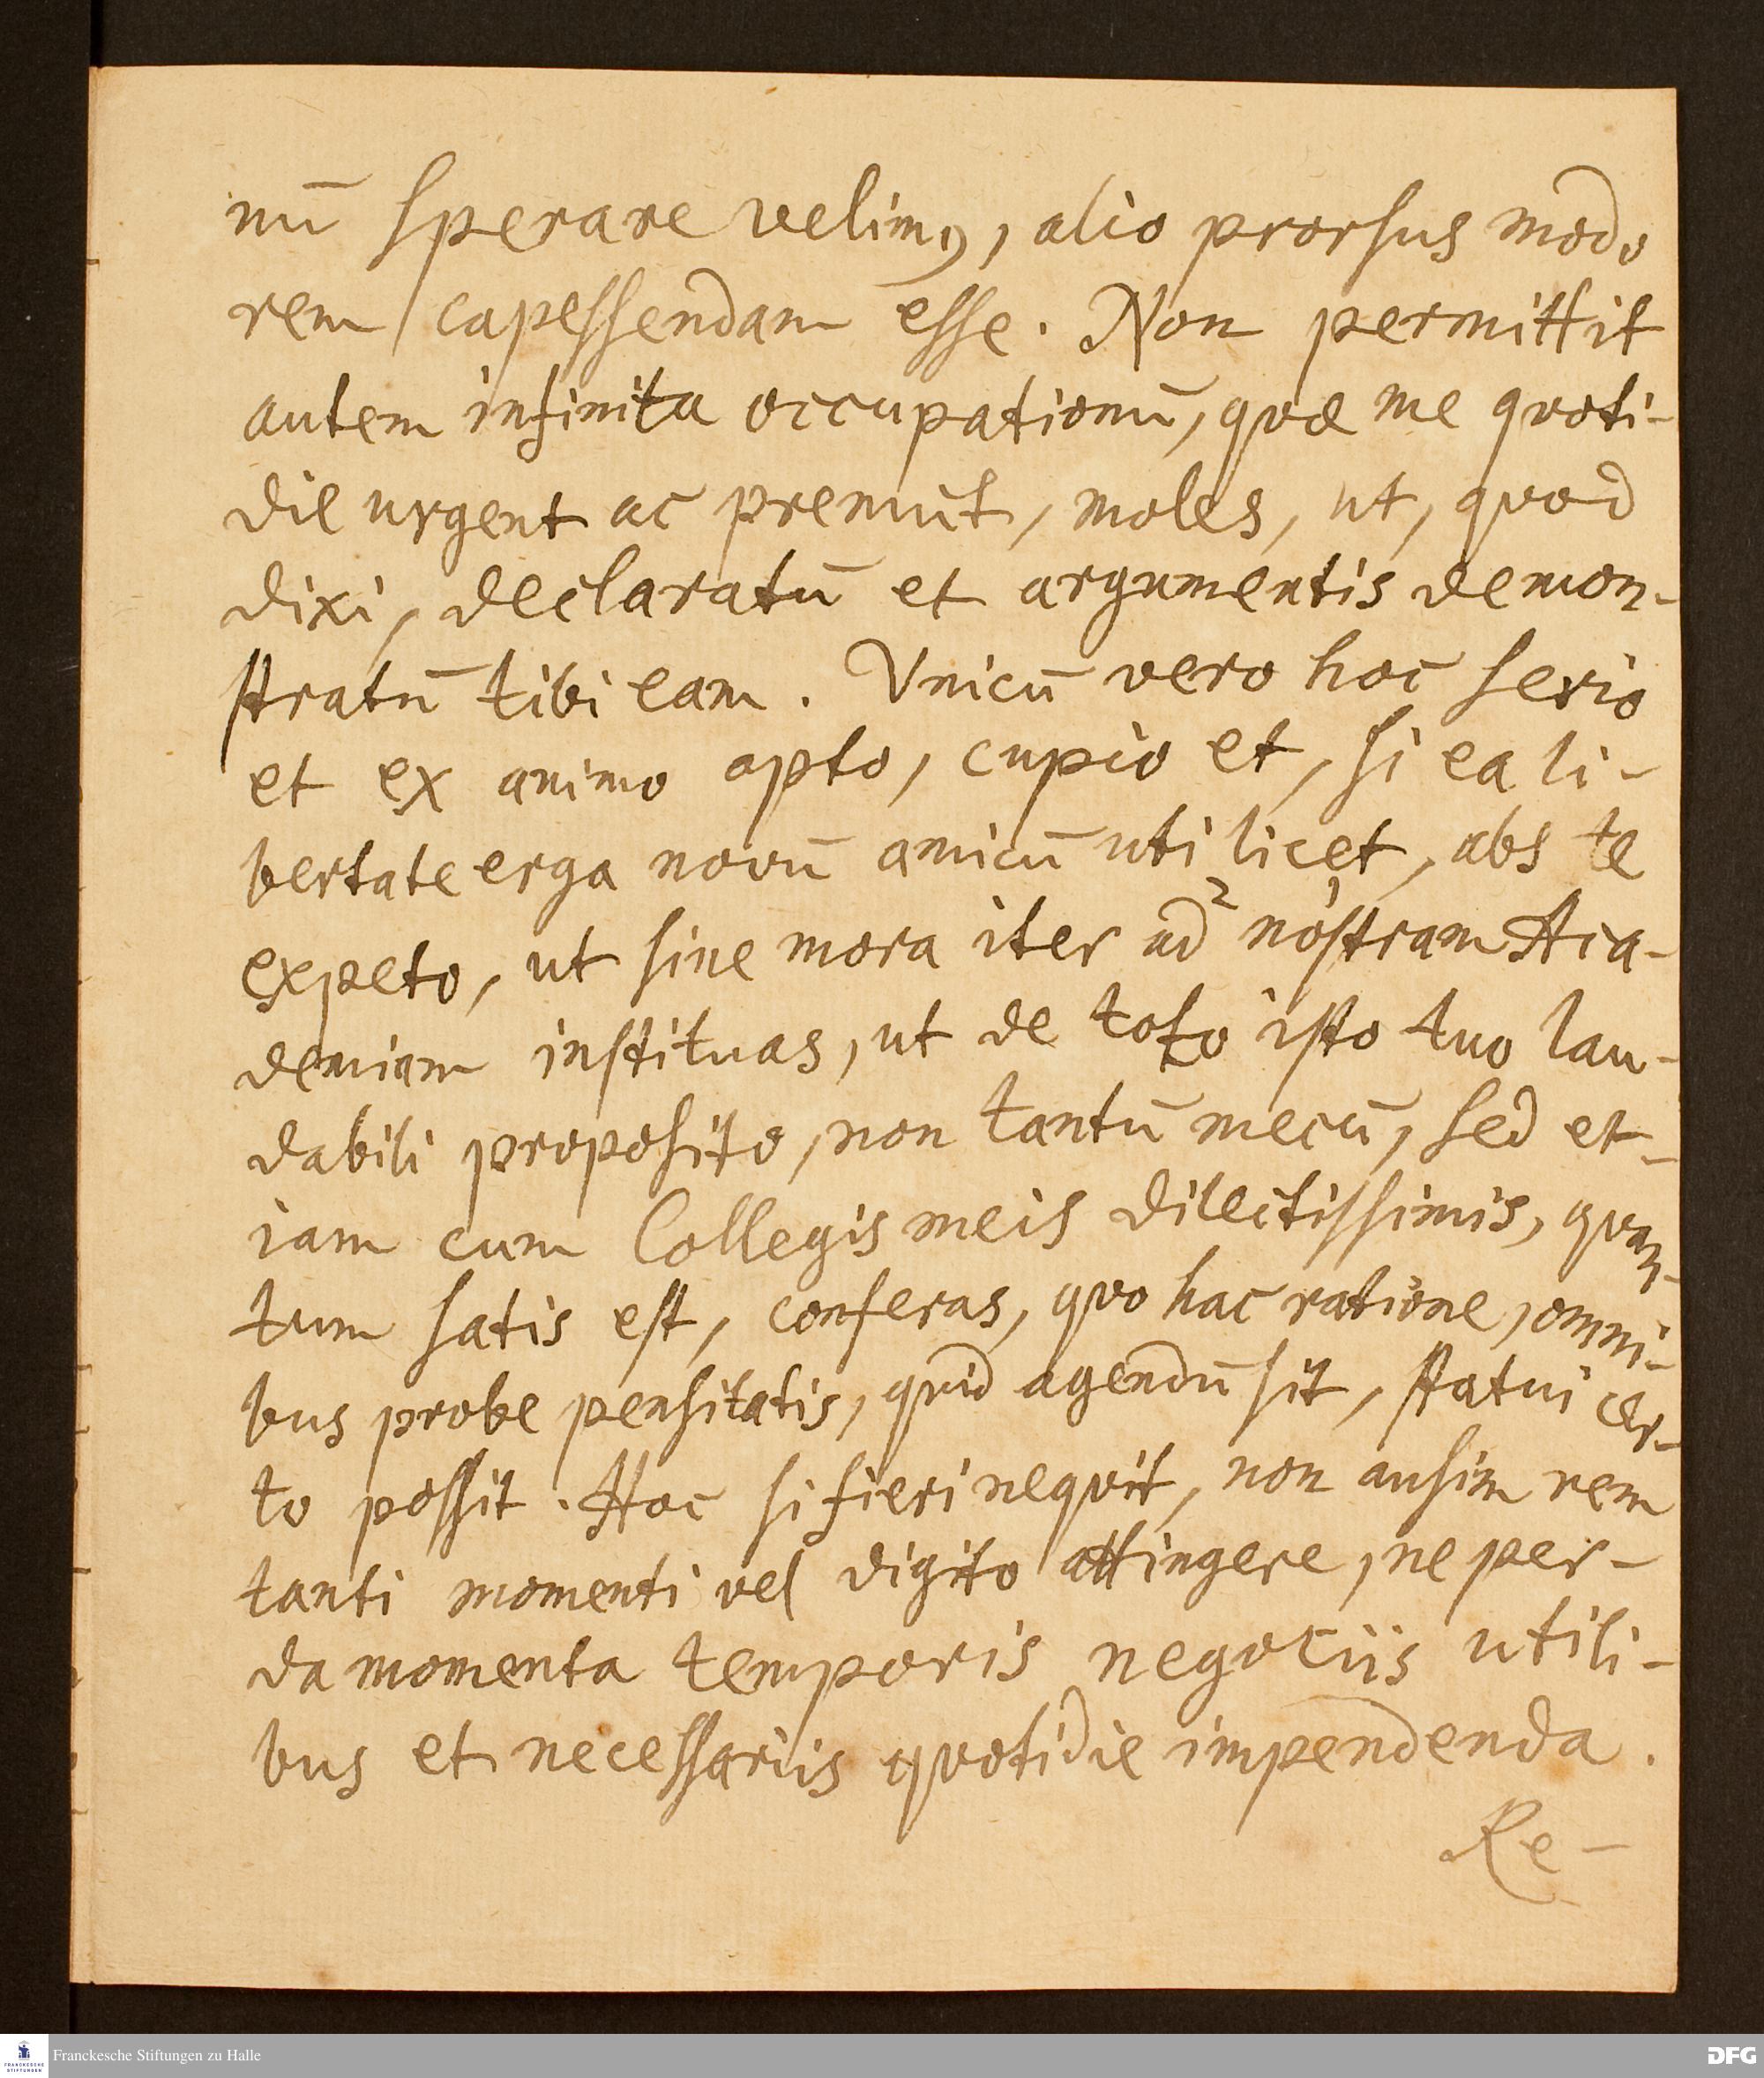 nū sperare velimꝰ, alio prorsus modo
rem capessendam esse. Non permittit
autem infinita occupationū, qvæ me qvoti-
die urgent ac premūt, moles, ut, qvod
dixi, declaratū et argumentis demon-
stratū tibi eam. Vnicū vero hoc serio
et ex animo opto, cupio et, si ea li-
bertate erga novū amicū uti licet, abs te
expeto, ut sine mora iter ad nostram Aca-
demiam instituas, ut de toto isto tuo lau-
dabili proposito, non tantū mecū, sed et-
iam cum Collegis meis dilectissimis, qvan-
tum satis est, conferas, qvo hac ratione, omni-
bus probe pensitatis, qvid agendū sit, statui cer-
to possit. Hoc si fieri neqvit, non ausim rem
tanti momenti vel digito attingere, ne per-
da momenta temporis negotiis utili-
bus et necessariis qvotidie impendenda.
Re-
Franckesche Stiftungen zu Halle
DFG